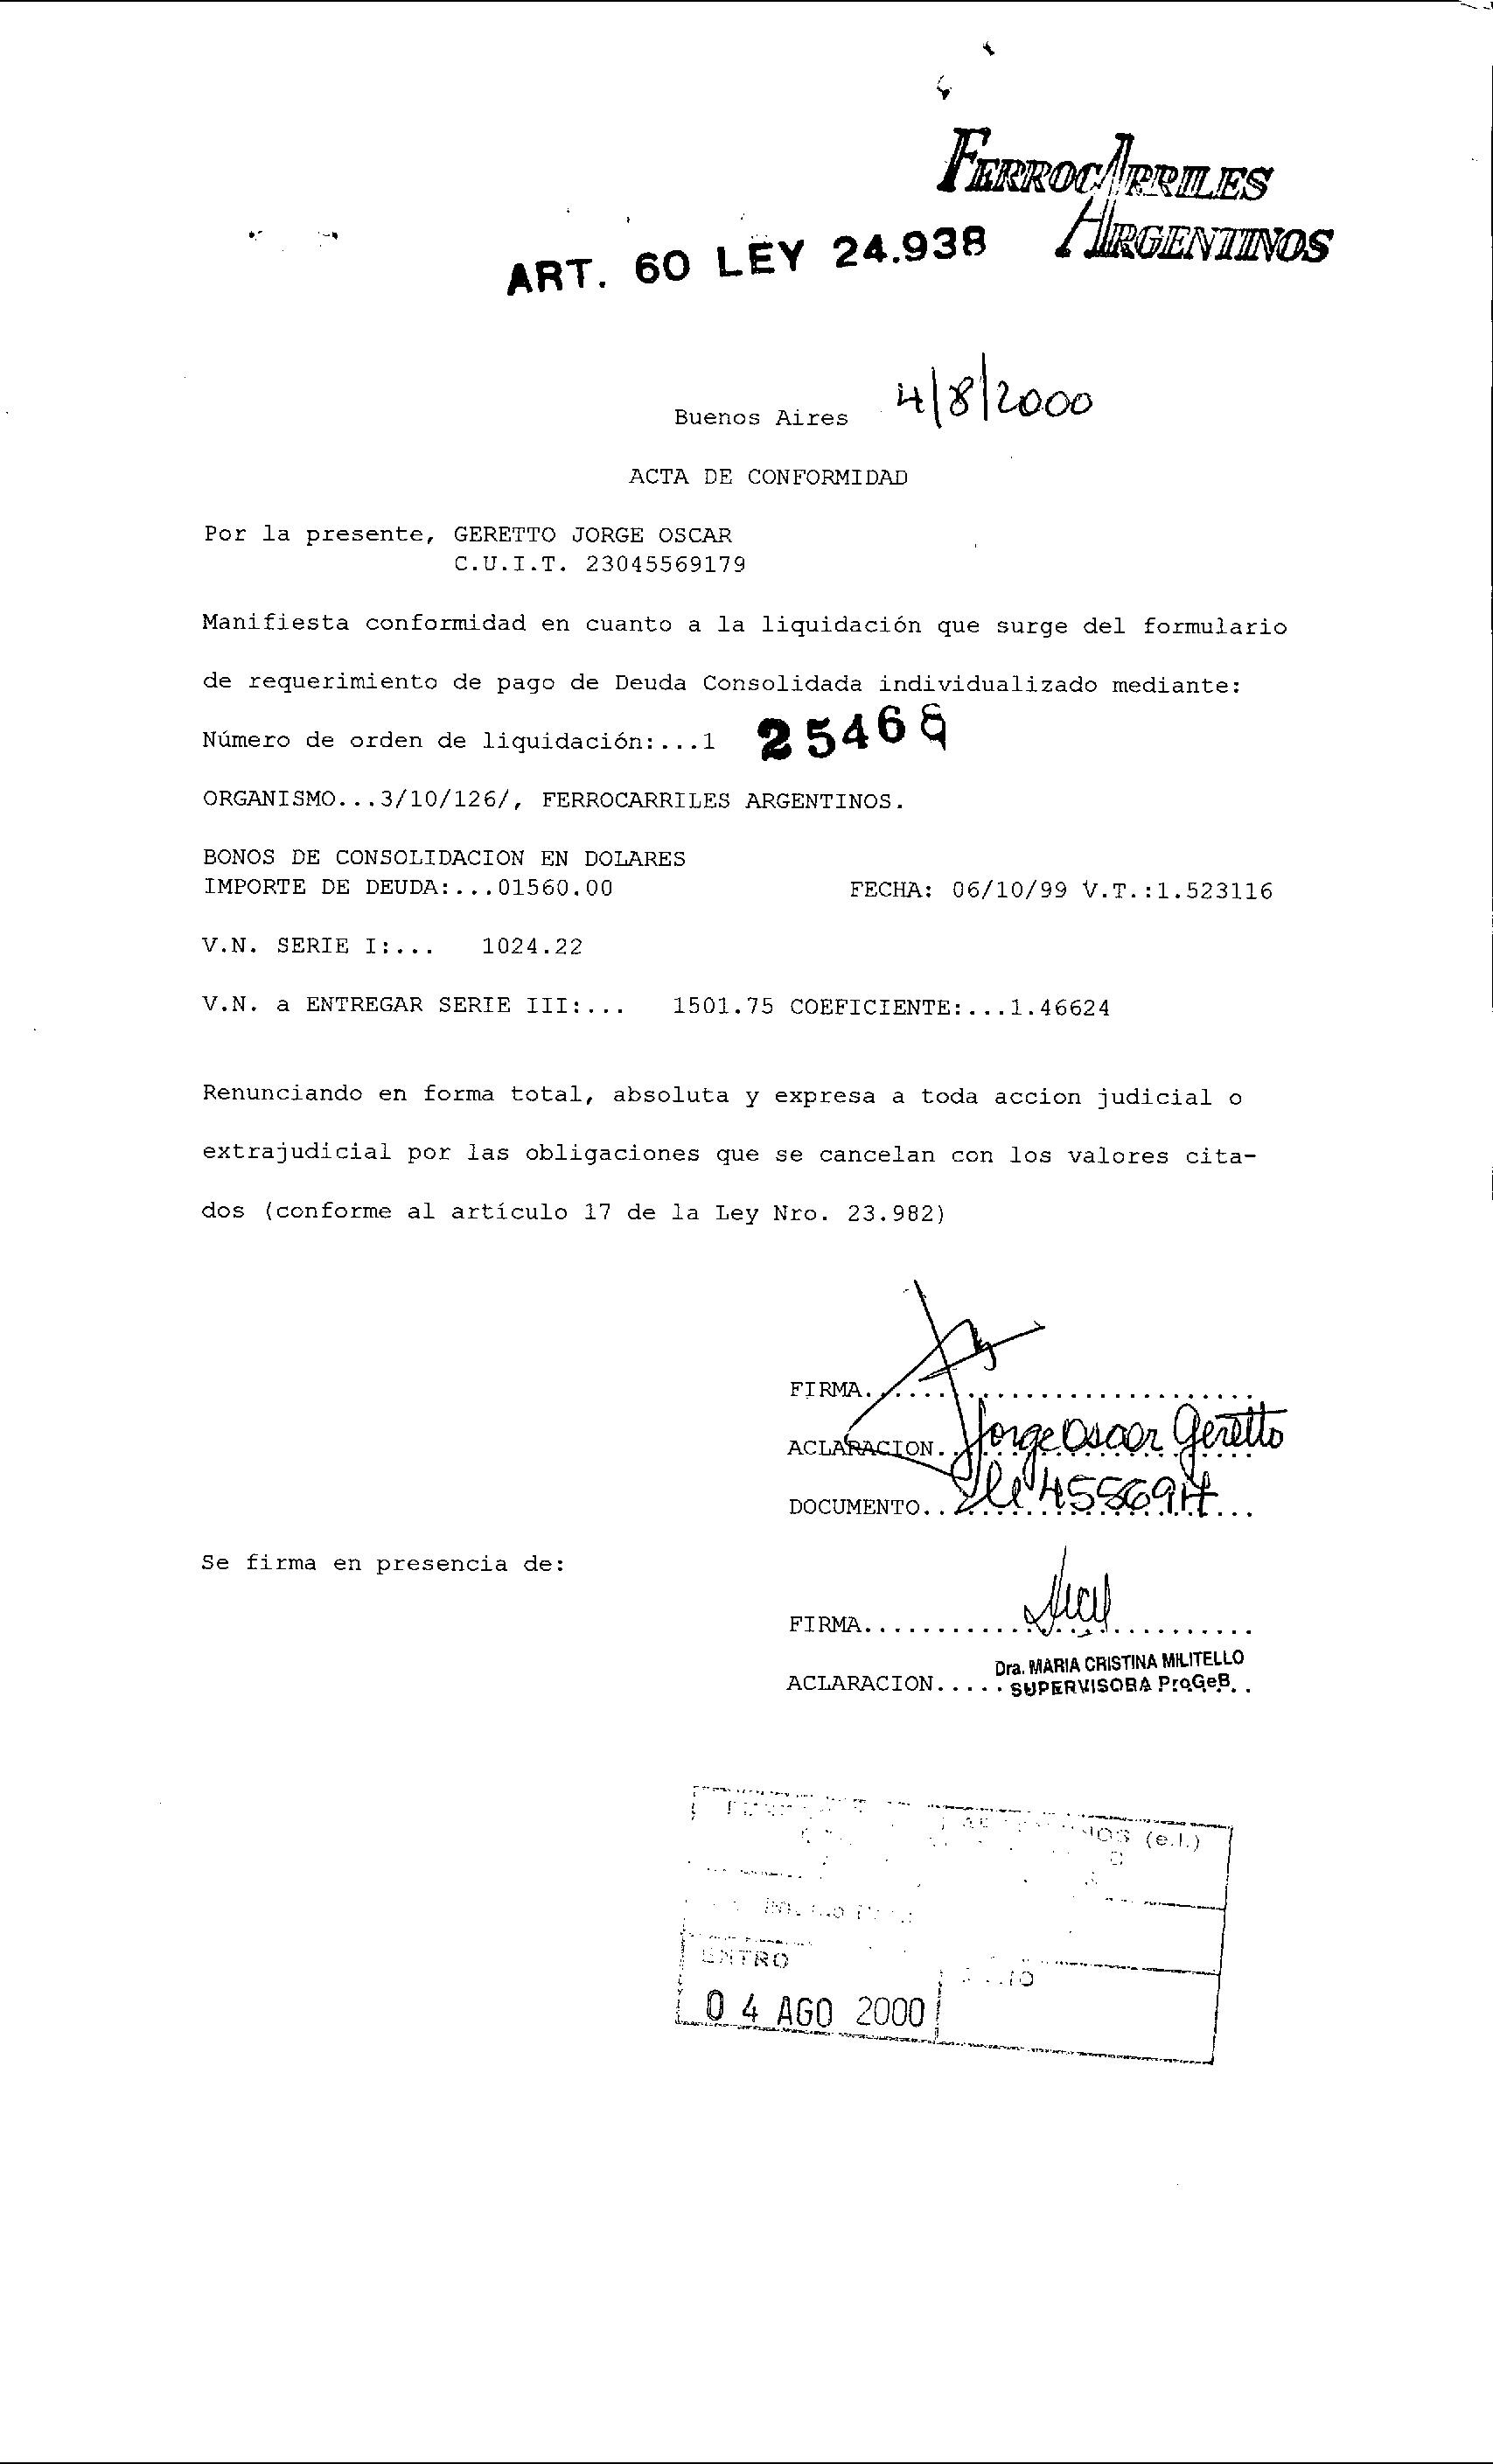 FERROCARRILES
ARGENTINOS
ART. 60 LEY 24.938
Buenos Aires 4/8/2000
ACTA DE CONFORMIDAD
Por la presente, GERETTO JORGE OSCAR
C.U.I.T. 23045569179
Manifiesta conformidad en cuanto a la liquidación que surge del formulario
de requerimiento de pago de Deuda Consolidada individualizado mediante:
Número de orden de liquidación:...1 2546
ORGANISMO...3/10/126/, FERROCARRILES ARGENTINOS.
BONOS DE CONSOLIDACION EN DOLARES
IMPORTE DE DEUDA:...01560.00 FECHA: 06/10/99 V.T.:1.523116
V.N. SERIE I:... 1024.22
V.N. a ENTREGAR SERIE III:... 1501.75 COEFICIENTE:...1.46624
Renunciando en forma total, absoluta y expresa a toda accion judicial o
extrajudicial por las obligaciones que se cancelan con los valores cita-
dos (conforme al artículo 17 de la Ley Nro. 23.982)
FIRMA..........................
ACLARACION. Jorge Oscar Geretto
DOCUMENTO.. 4556917...
Se firma en presencia de:
FIRMA..........................
Dra. MARIA CRISTINA MILITELLO
ACLARACION..... SUPERVISORA ProGeB..
(e.l.)
ENTRO
04 AGO 2000